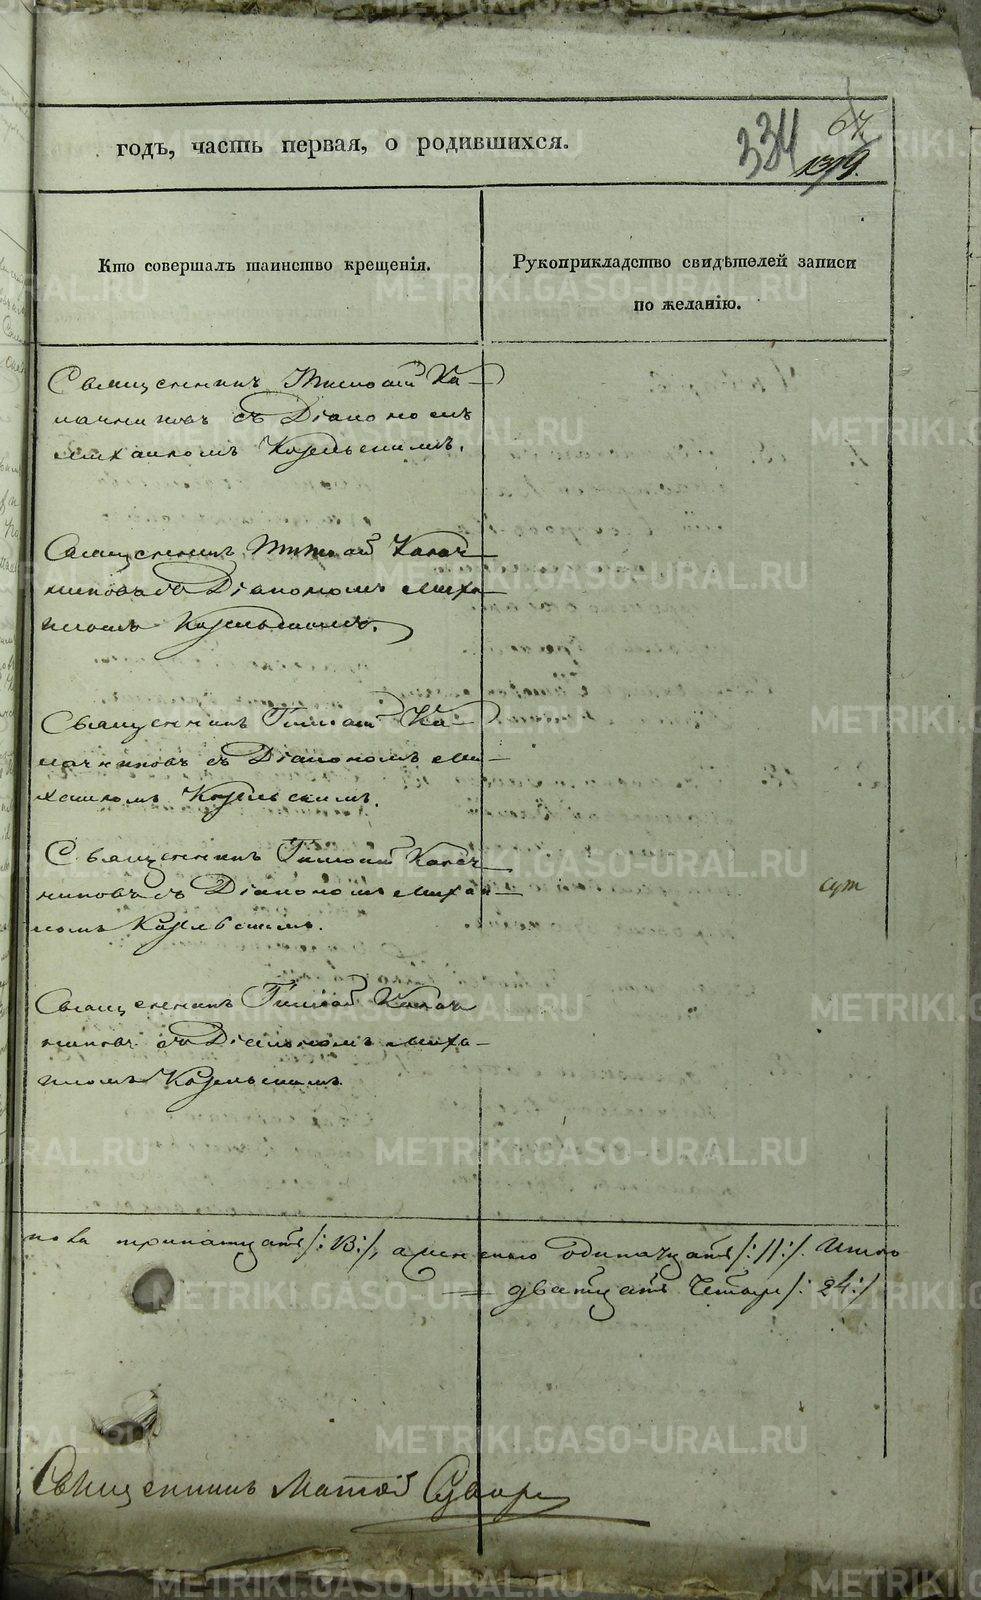 67
334
1319.
годъ, часть первая, о родившихся.
Кто совершалъ таинство крещенія.
Рукоприкладство свидѣтелей записи
по желанію.
Священникъ Тимофей Ка-
лачниковъ съ Діакономъ
Михаиломъ Козельскимъ.
Священникъ Тимофей Калач-
никовъ съ Діакономъ Миха-
иломъ Козельскимъ.
Священникъ Тимофей Ка-
лачниковъ съ Діакономъ Ми-
хаиломъ Козельскимъ.
Священникъ Тимофей Калач-
никовъ съ Діакономъ Михаи-
ломъ Козельскимъ.
Священникъ Тимофей Калач
никовъ съ Діакономъ Миха-
иломъ Козельскимъ.
пола тринатцать /:13:/, а женскаго одинатцать /:11:/. Итого
дватцать четыре /:24:/
Священникъ Матфей
METRIKI.GASO-URAL.RU